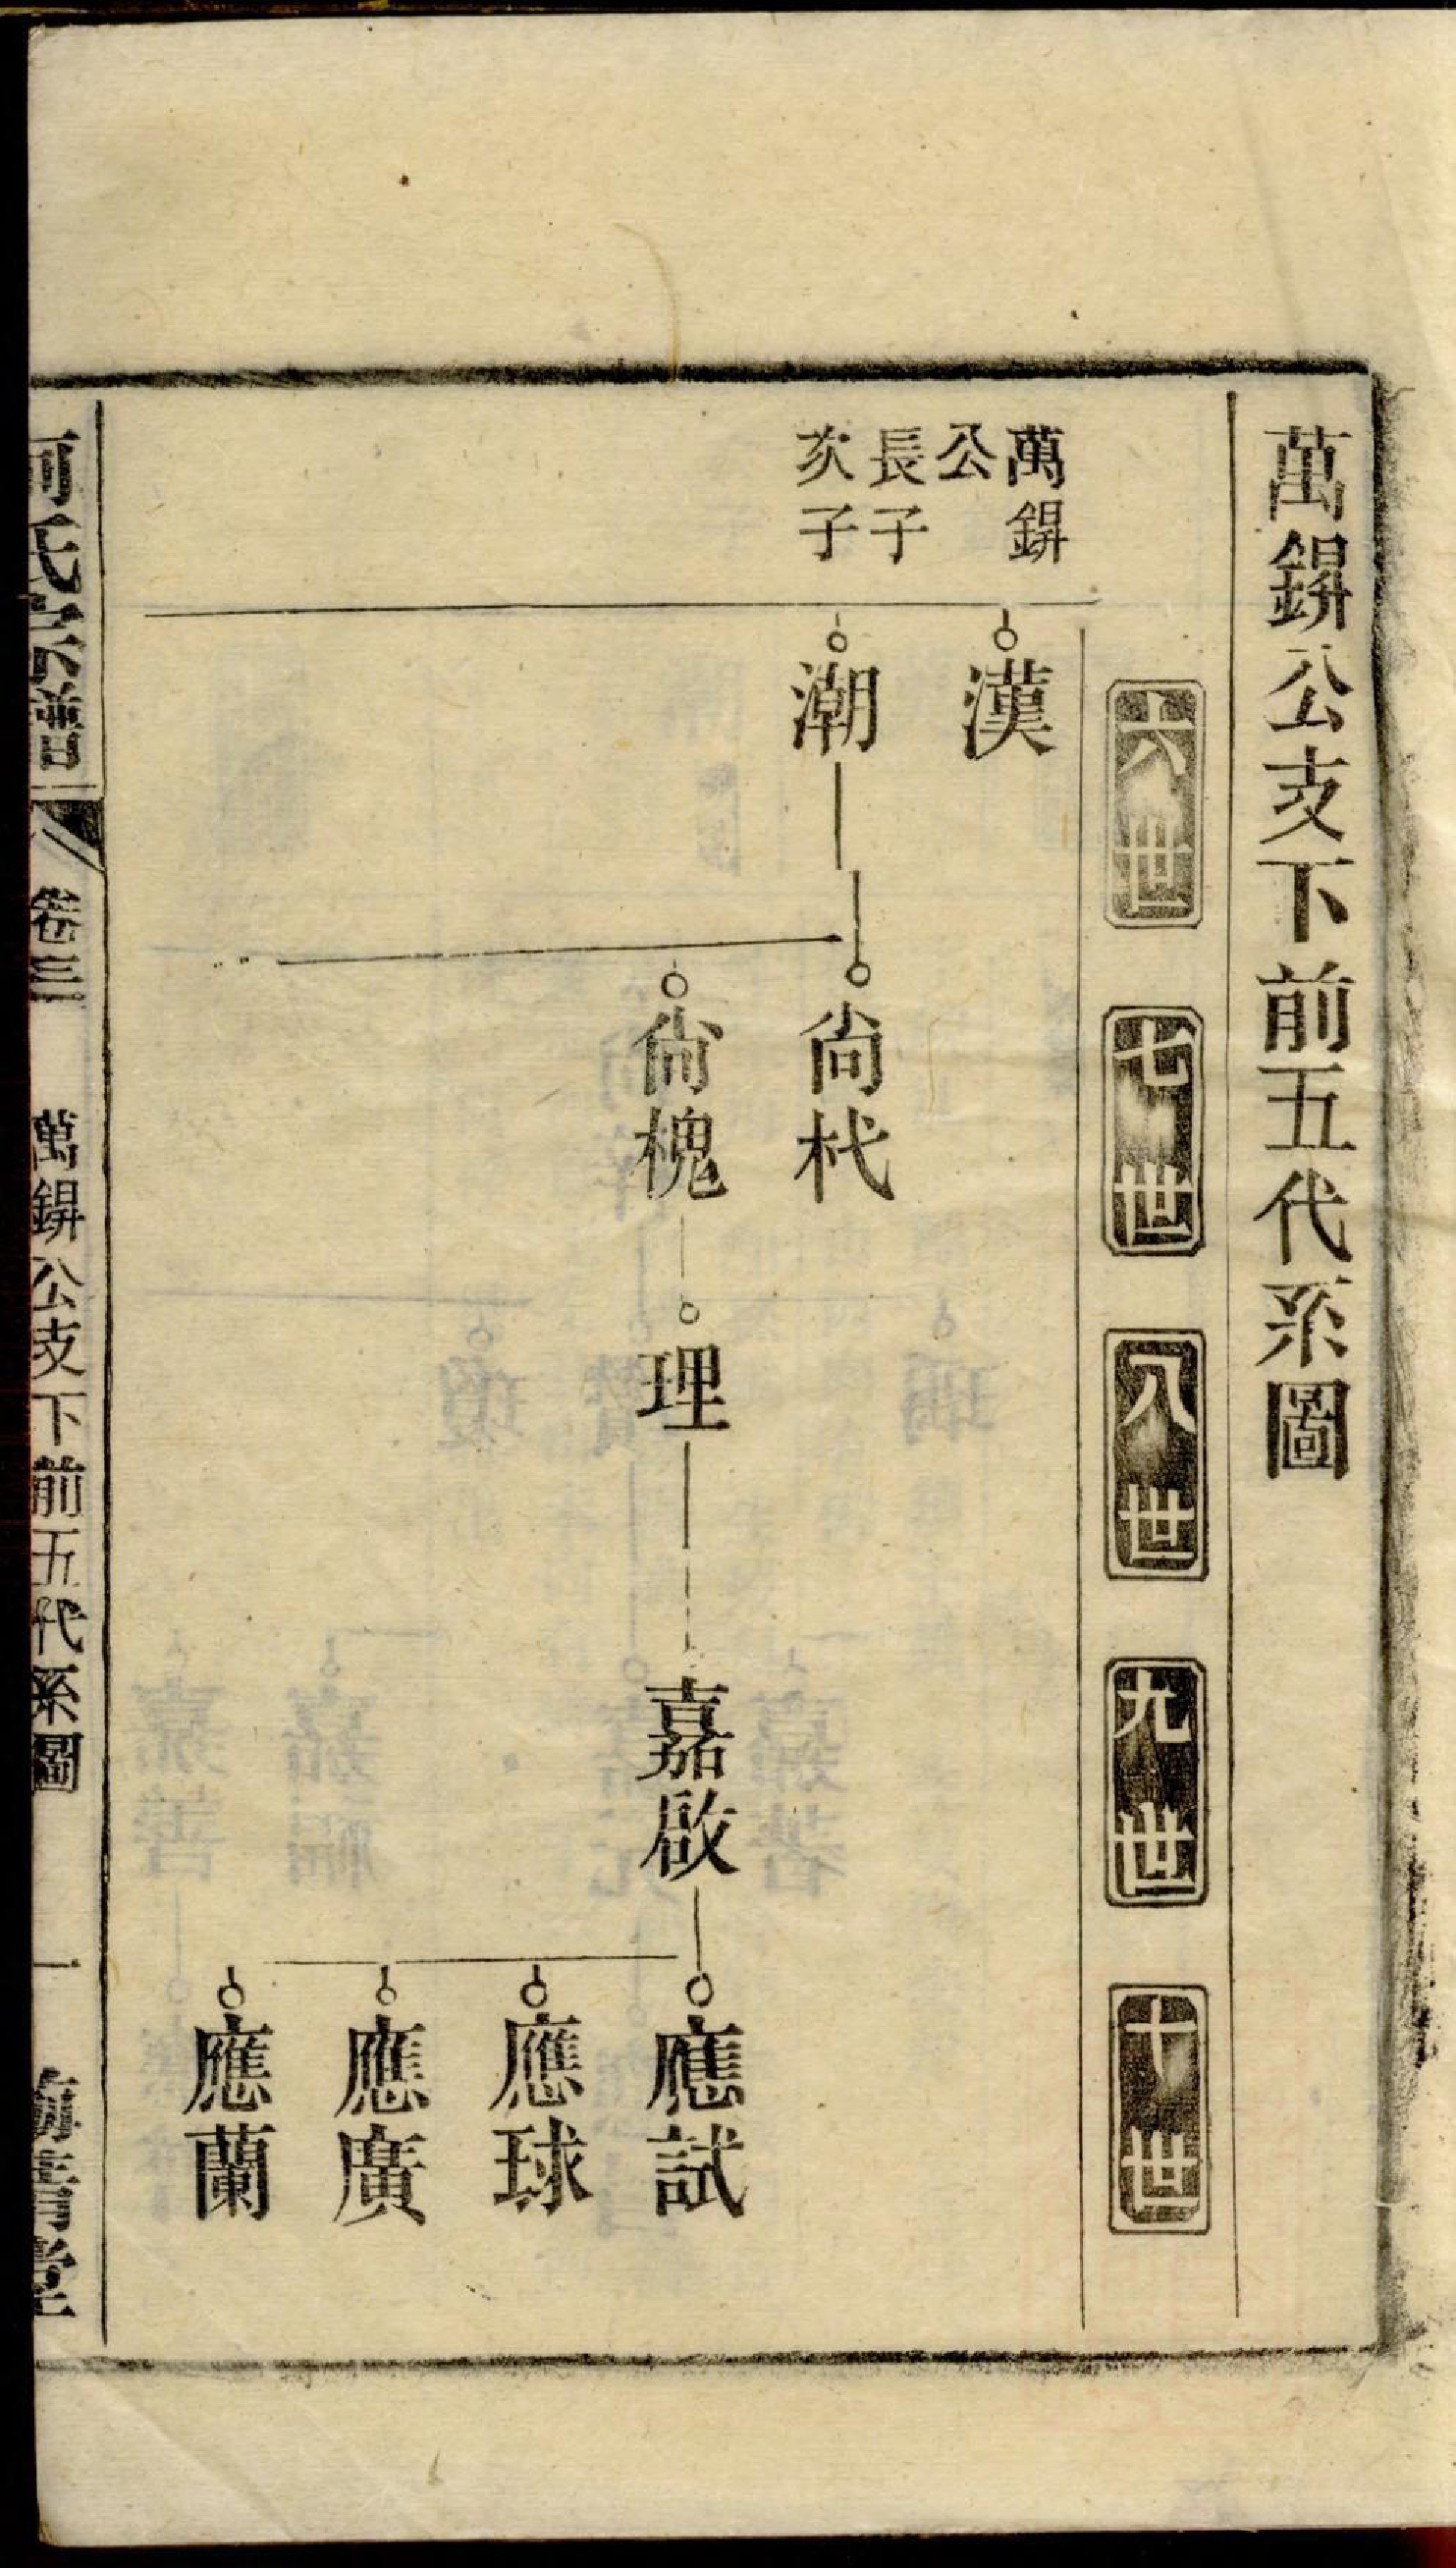 萬鎅公支下前五代系圖
六世
七世
八世
九世
十世
萬鎅
公
長子
次子
漢
潮
尙杙
尙槐
理
嘉啟
應試
應球
應廣
應蘭
氏宗譜
卷三
萬鎅公支下前五代系圖
一
書堂